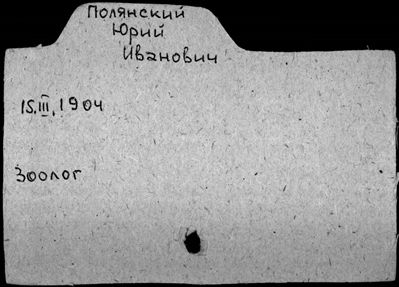 Полянский
Юрий
Иванович
15.III.1904
Зоолог